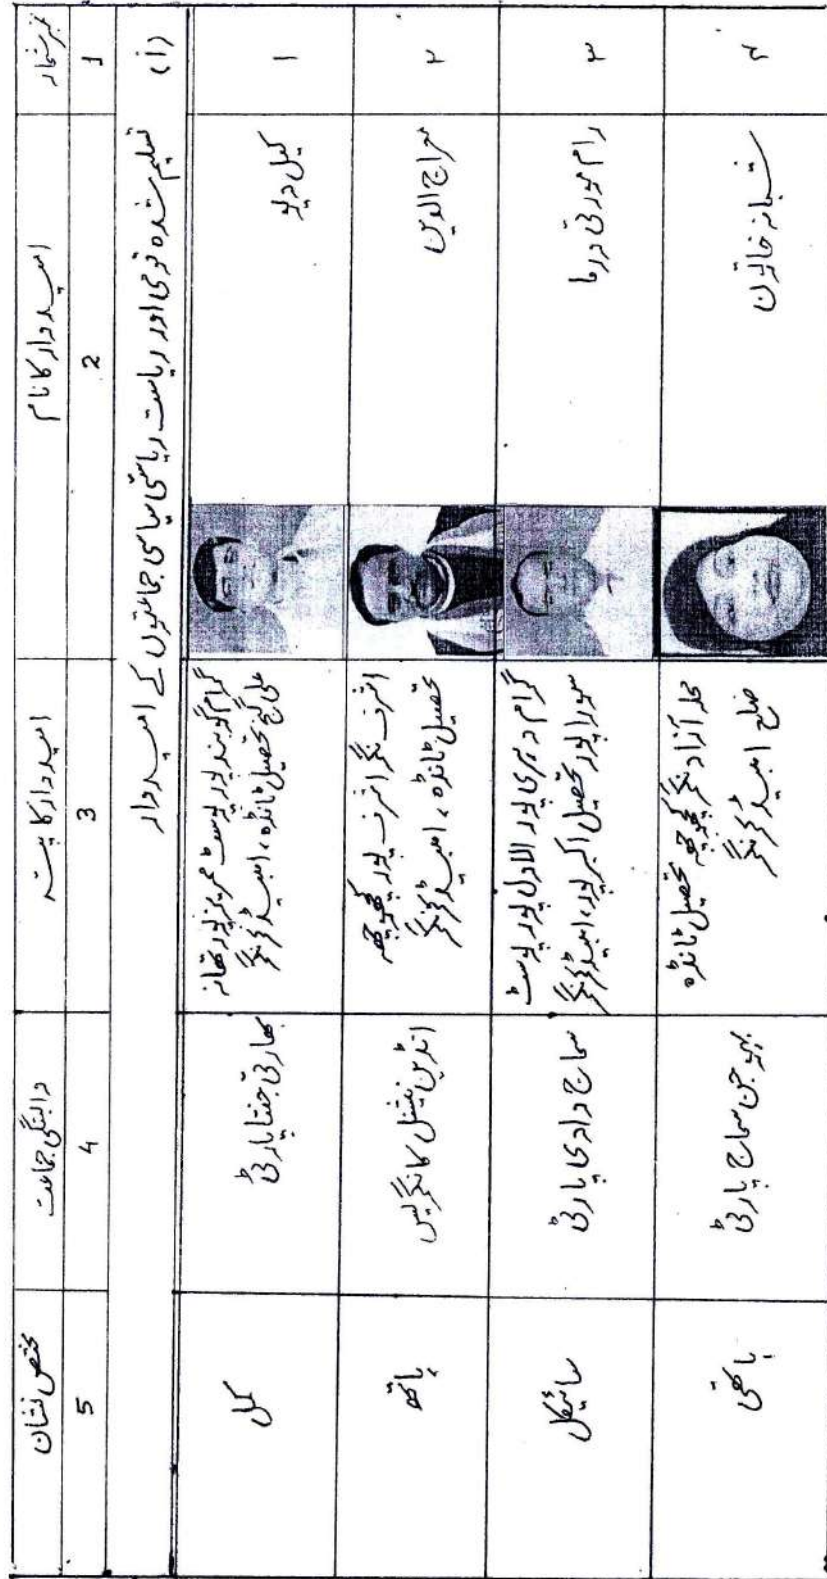 نمبر شمار
امیدوار کا نام
امیدوار کا پتہ
وابستگی جماعت
مختص نشان
1
2
3
4
5
(i) تسلیم شدہ قومی اور ریاست ریاستی سیاسی جماعتوں کے امیدوار
۱
کپل دیو
گرام گوبند پور پوسٹ عزیز پور تھانہ
علی گنج تحصیل ٹانڈہ، امبیڈکرنگر
بھارتی جنتا پارٹی
کمل
۲
معراج الدین
اشرف نگر اشرف پور کچھوچھہ
تحصیل ٹانڈہ، امبیڈکرنگر
انڈین نیشنل کانگریس
ہاتھ
۳
رام مورتی ورما
گرام دہری پور الاول پور پوسٹ
سوراپور تحصیل اکبرپور، امبیڈکرنگر
سماج وادی پارٹی
سائیکل
۴
شبانہ خاتون
محلہ آزاد نگر کچھوچھہ تحصیل ٹانڈہ
ضلع امبیڈکرنگر
بہوجن سماج پارٹی
ہاتھی